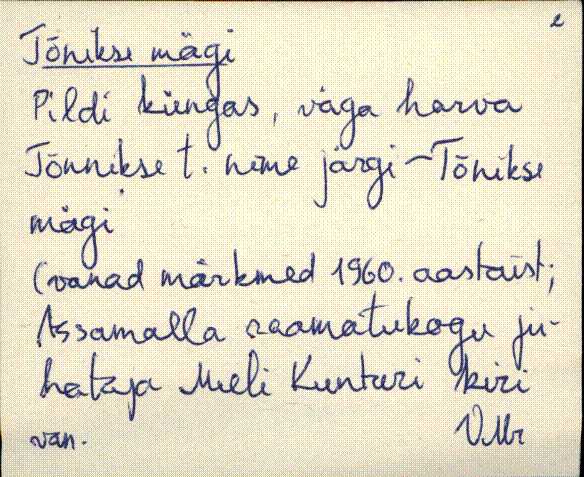 Tõnikse mägi
Pildi küngas, väga harva
Tõnnikse t. nime järgi ~ Tõnikse
mägi
(vanad märkmed 1960. aastaist;
Assamalla raamatukogu ju-
hataja Meeli Kunturi kiri
van.